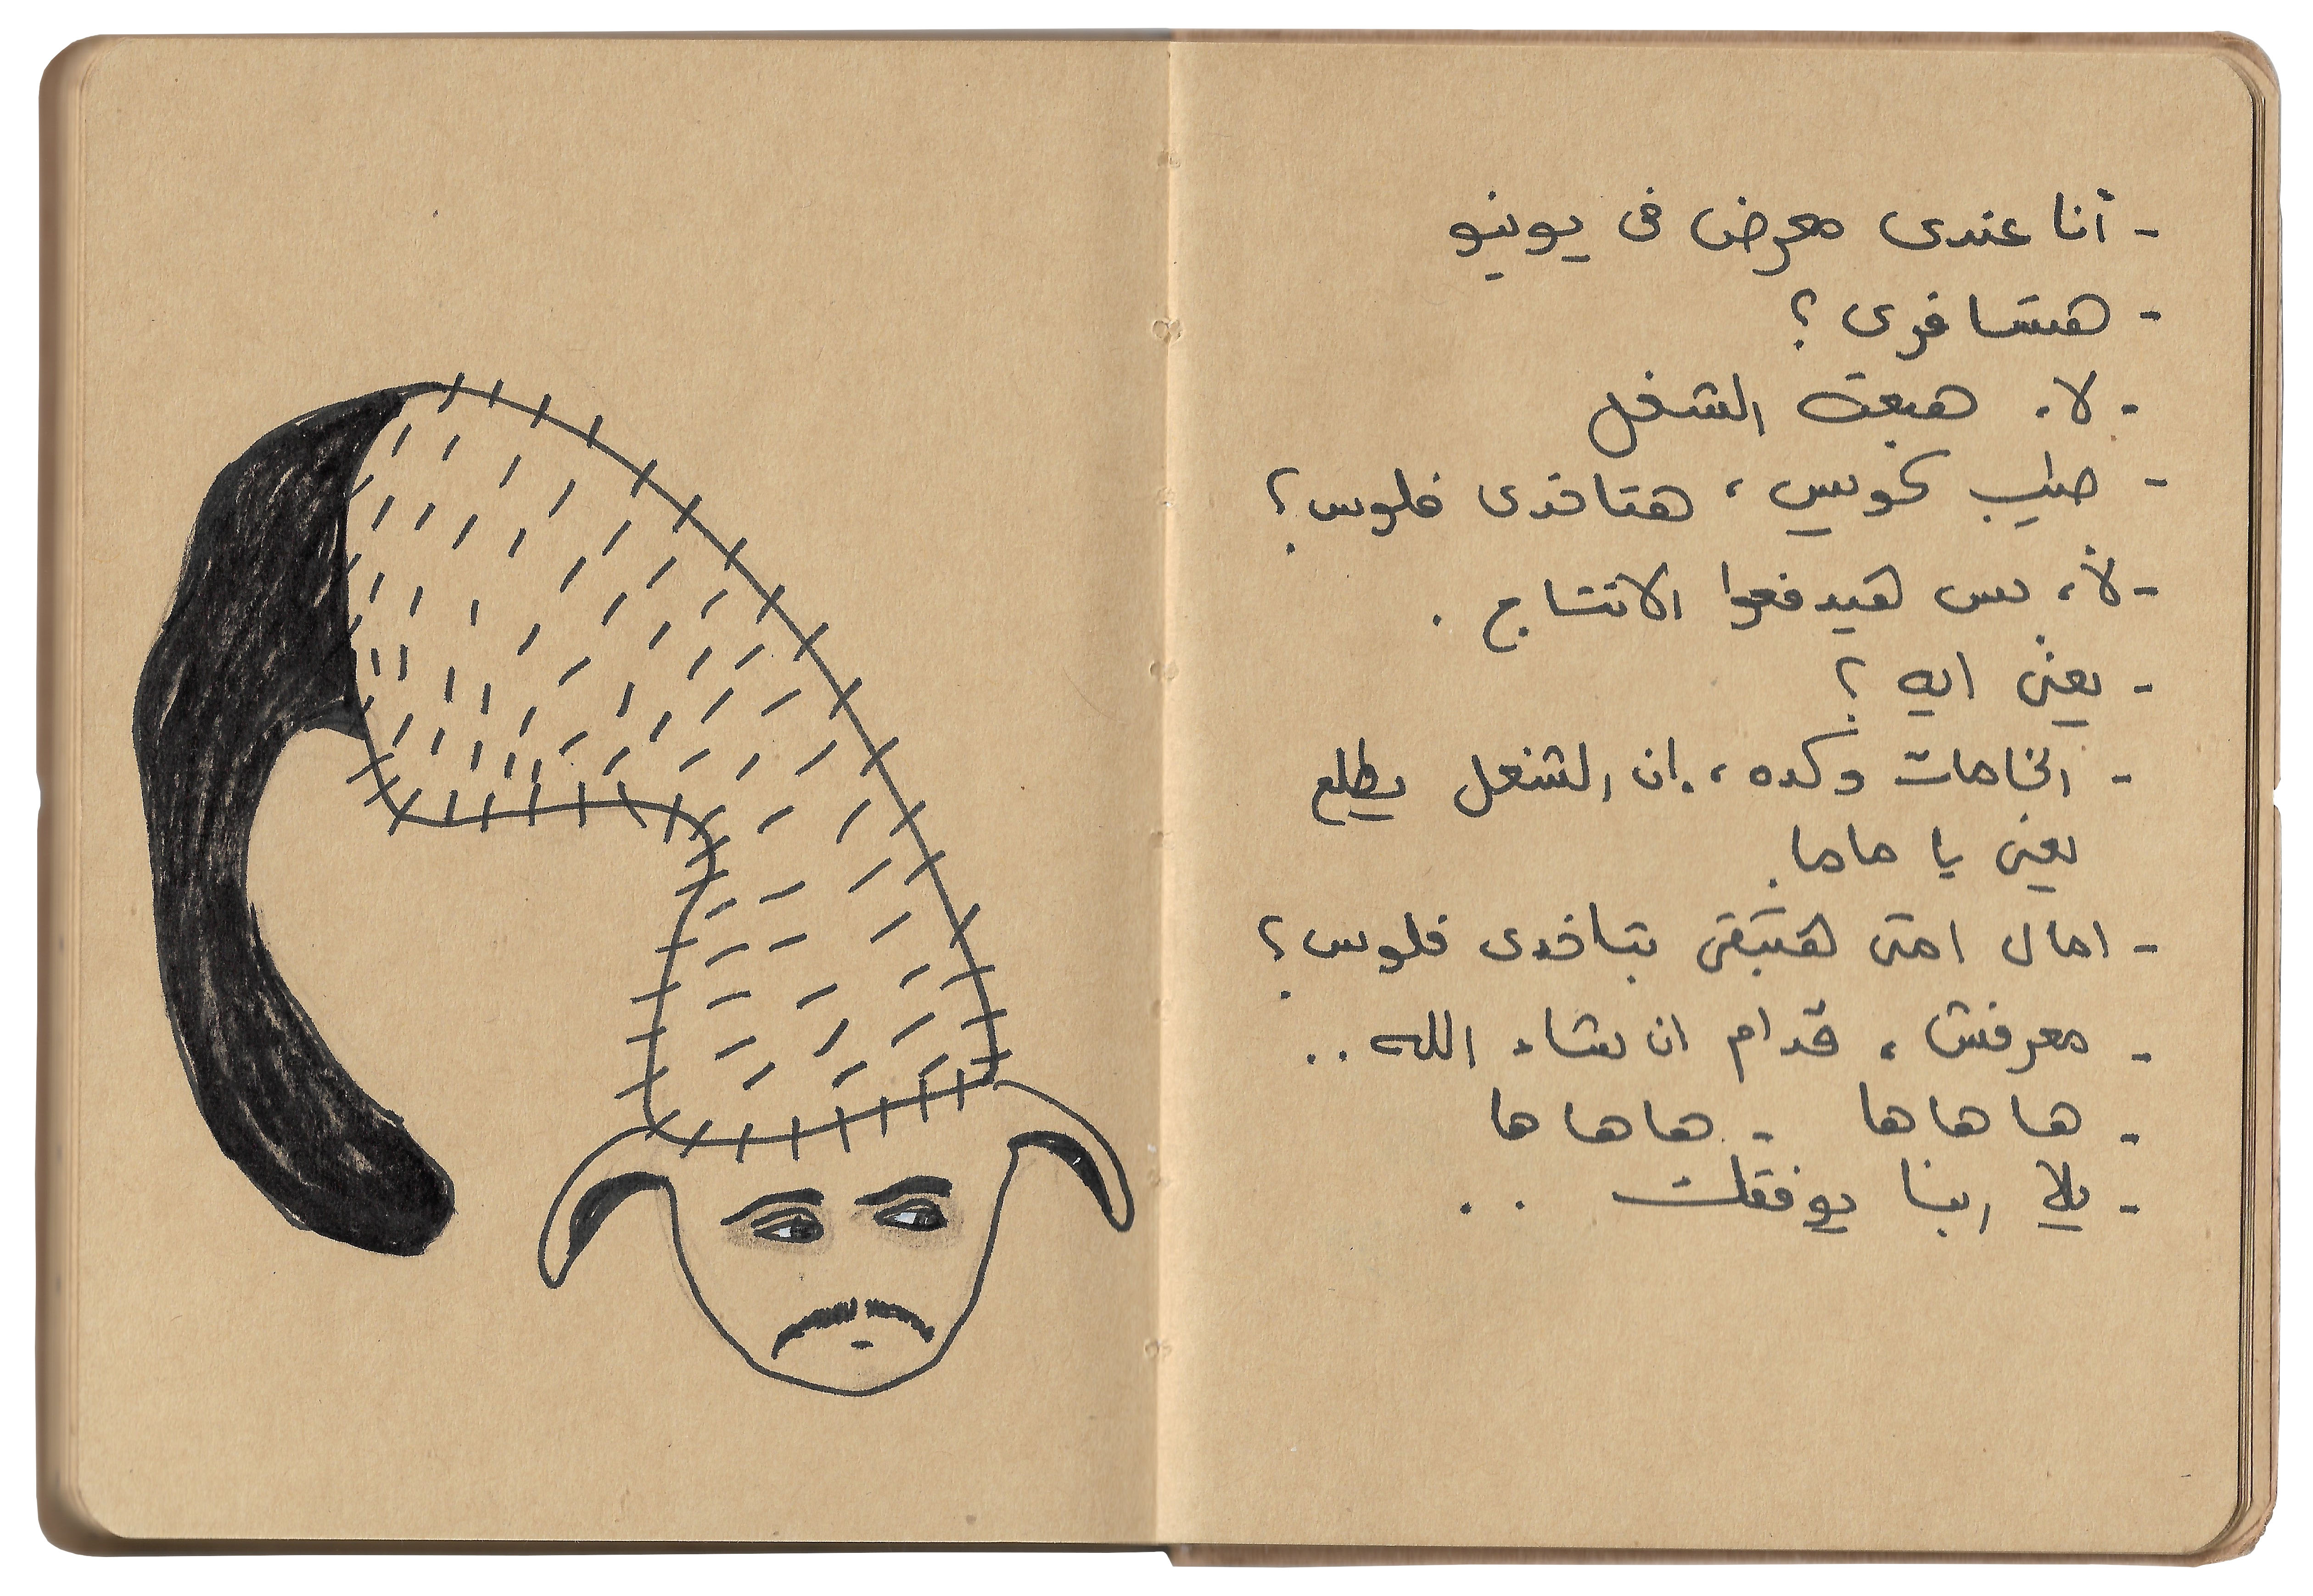 - أنا عندى معرض فى يونيو
- هتسافرى ؟
- لا. هبعت الشغل
- طيب كويس ، هتاخدى فلوس ؟
- لأ، بس هيدفعوا الانتاج .
- يعنى ايه ؟
- الخامات وكده ، إن الشغل يطلع
يعنى يا ماما.
- امال امتى هتبقى بتاخدى فلوس ؟
- معرفش ، قدام ان شاء الله ..
- ها ها ها - ها ها ها
- يلا ربنا يوفقك ..